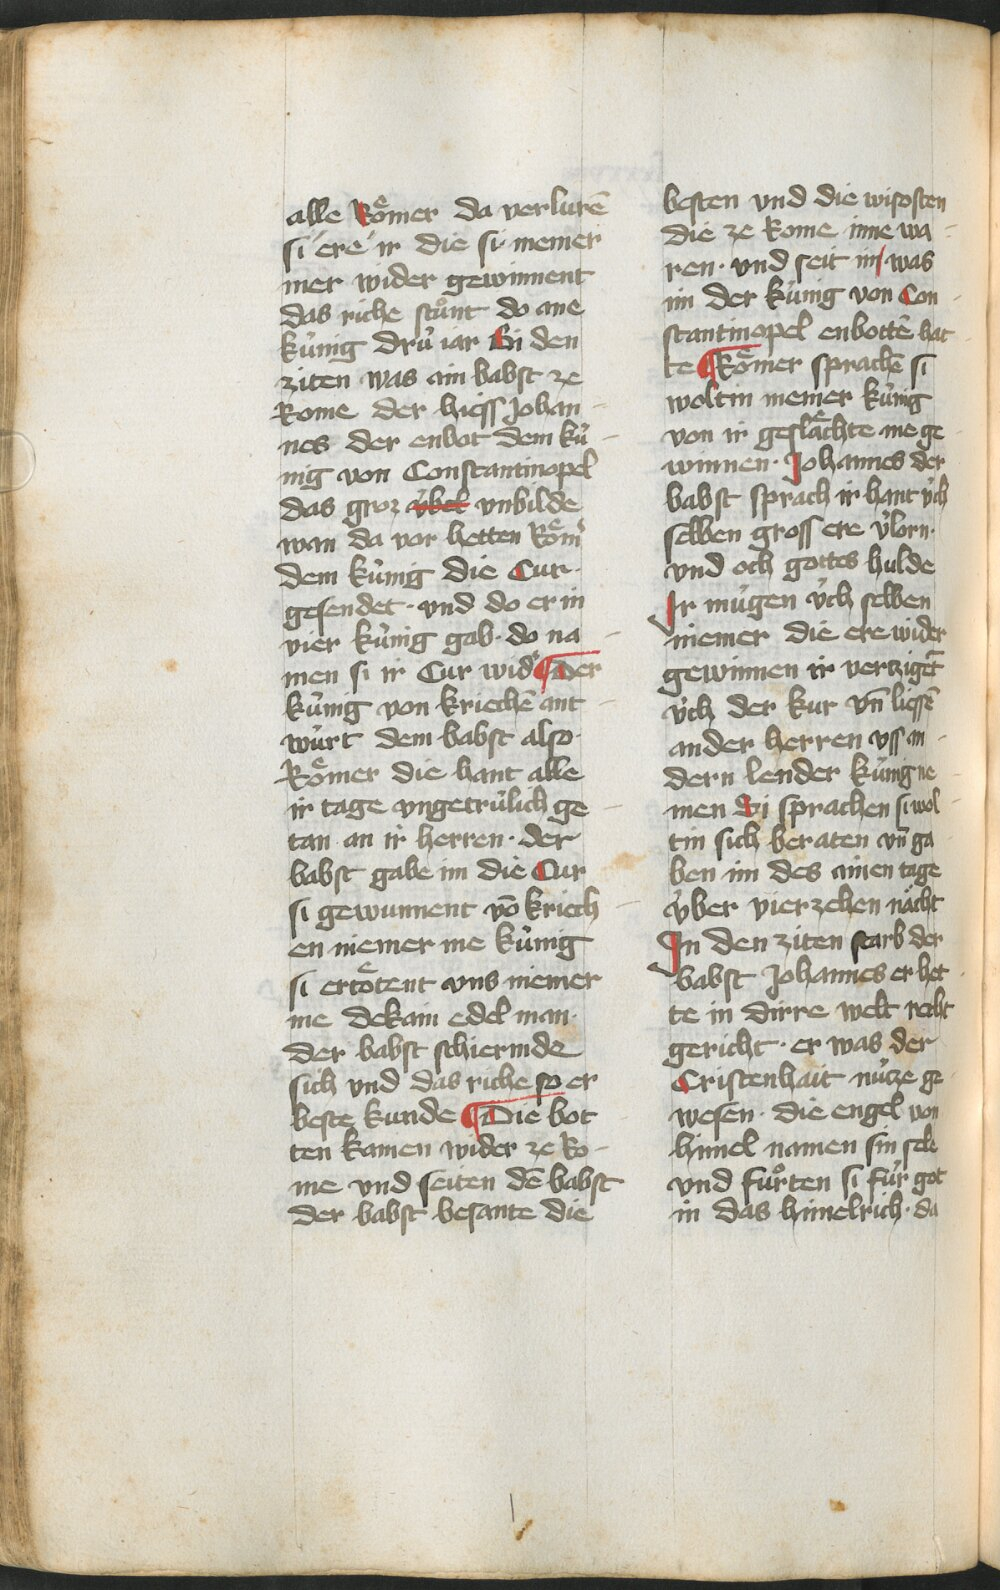 alle Roͤmer da verlurē
si ere ir die si niemer
mer wider gewinnent
das riche stuͦnt do ane
kuͥnig druͥ iar Bi den
ziten was ain babst ze
Rome der hiess Johan-
nes der enbot dem kuͥ-
nig von Constantinopel
das gros vnbilde
wan da vor hetten Roͤm̄
dem kuͥnig die Cur
gesendet · vnd do er in
vier kuͥnig gab · do na-
men si ir Cur wid̄ ¶ Der
kuͥnig von kriechē ant-
wuͥrt dem babst also ·
Roͤmer die hant alle
ir tage vngetruͥlich ge-
tan an ir herren · der
babst gabe im die Cur
si gewunnent vō kriech-
en niemer me kuͥnig
si ertoͤtent vns niemer
me dekain edel man ·
der babst schiermde
sich vnd das riche so er
beste kunde ¶ Die bot
ten kamen wider ze Ro-
me vnd seiten dē babst
der babst besante die
besten vnd die wisosten
die ze Rome inne wa-
ren · vnd seit in was
im der kuͥnig von Con-
stantinopel enbottē hat
te ¶ Roͤmer sprachē si
woltin niemer kuͥnig
von ir geslaͤchte me ge-
winnen · Johannes der
babst sprach ir hant uͥch
selben gross ere v̄lorn ·
vnd och gottes hulde
Ir muͥgen uͥch selben
niemer die ere wider
gewinnen ir verzigēt
uͥch der kur vn̄ liessē
ander herren vss an-
dern lender kuͥnig ne
men Si sprachen si wol-
tin sich beraten vn̄ ga
ben im des ainen tage
uͥber vierzehen naͤcht
In den ziten starb der
babst Johannes er het-
te in dirre welt recht
gericht · er was der
Cristenhait nuͥtze ge-
wesen · die engel von
himel namen sin sele
vnd fuͦrten si fuͥr got
in das himelrich · da